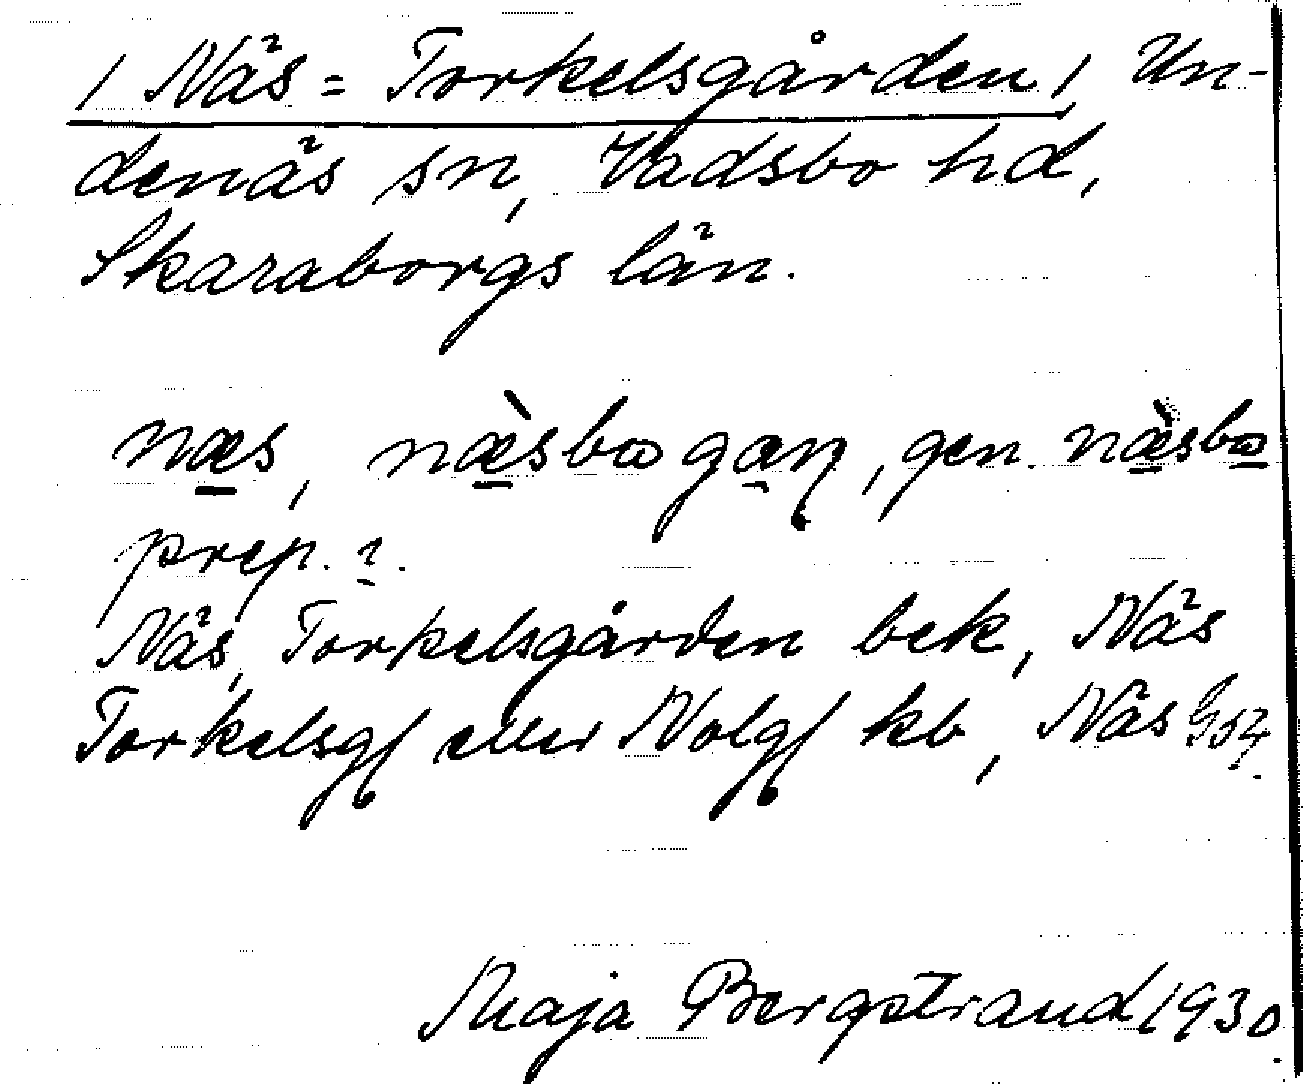 / Näs = Torkelsgården /, Un-
denäs sn, Vadsbo hd,
Skaraborgs län.
næs, næ̀sbɷgaɳ, gen. næ̀sbɷ
prep. ı.
Näs, Torkelsgården bek, Näs
Torkelsg/ eller Nolg/ kb, Näs G57.
Maja Bergstrand 1930